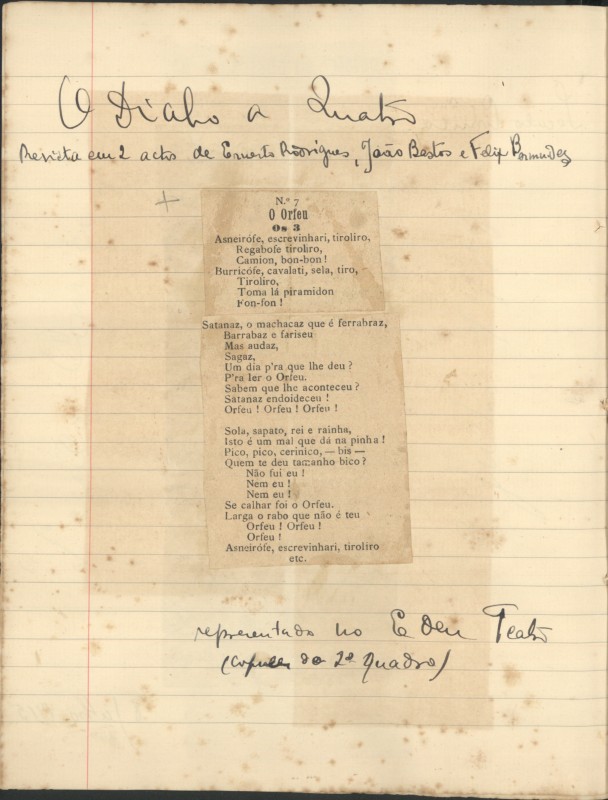 O Diabo a Quatro
Revista em 2 actos de Ernesto Rodrigues, João Bastos e Felix Bermudes
N.º 7
O Orfeu
Os 3
Asneirófe, escrevinhari, tiroliro,
Regabofe tiroliro,
Camion, bon-bon !
Burricófe, cavalati, sela, tiro,
Tiroliro,
Toma lá piramidon
Fon-fon !
Satanaz, o machacaz que é ferrabraz,
Barrabaz e fariseu
Mas audaz,
Sagaz,
Um dia p'ra que lhe deu ?
P'ra ler o Orfeu.
Sabem que lhe aconteceu ?
Satanaz endoideceu !
Orfeu ! Orfeu ! Orfeu !
Sola, sapato, rei e rainha,
Isto é um mal que dá na pinha !
Pico, pico, cerinico, — bis —
Quem te deu tamanho bico ?
Não fui eu !
Nem eu !
Nem eu !
Se calhar foi o Orfeu.
Larga o rabo que não é teu
Orfeu ! Orfeu !
Orfeu !
Asneirófe, escrevinhari, tiroliro
etc.
representado no Eden Teatro
(copules do 2º Quadro)